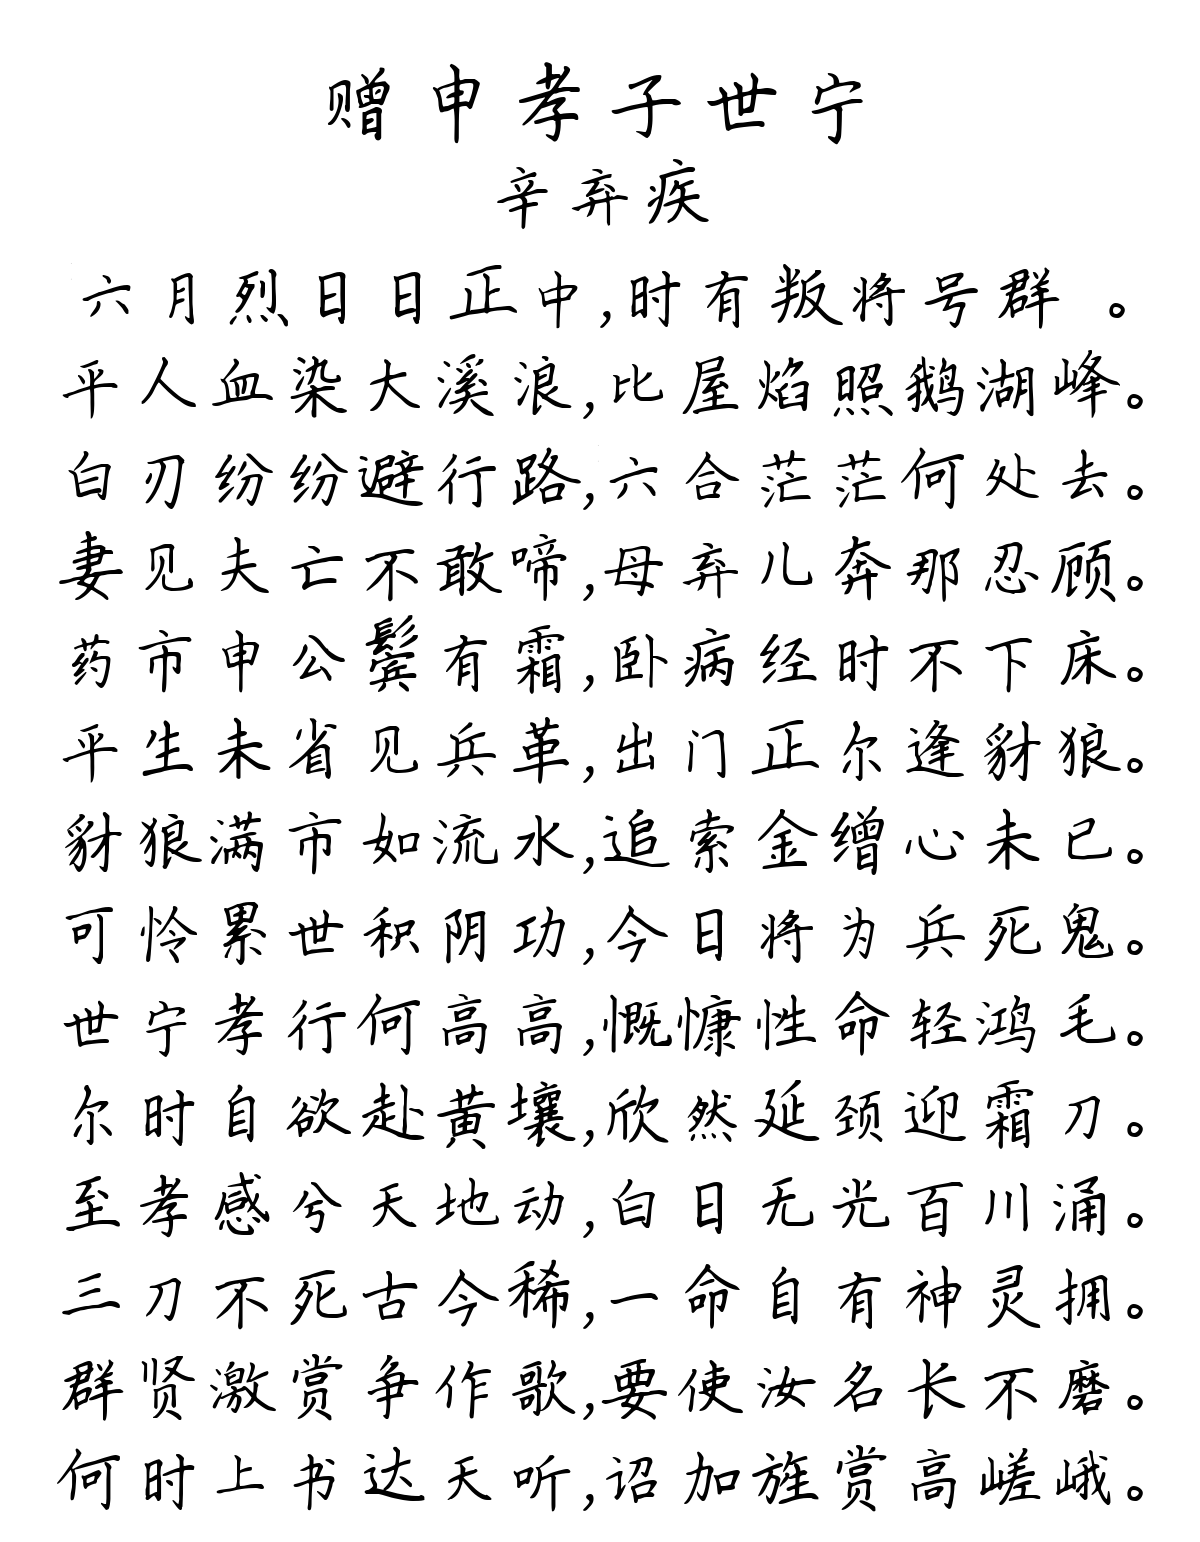 赠申孝子世宁
辛弃疾
六月烈日日正中,时有叛将号群 。
平人血染大溪浪,比屋焰照鹅湖峰。
白刃纷纷避行路,六合茫茫何处去。
妻见夫亡不敢啼,母弃儿奔那忍顾。
药市申公鬓有霜,卧病经时不下床。
平生未省见兵革,出门正尔逢豺狼。
豺狼满市如流水,追索金缯心未已。
可怜累世积阴功,今日将为兵死鬼。
世宁孝行何高高,慨慷性命轻鸿毛。
尔时自欲赴黄壤,欣然延颈迎霜刀。
至孝感兮天地动,白日无光百川涌。
三刀不死古今稀,一命自有神灵拥。
群贤激赏争作歌,要使汝名长不磨。
何时上书达天听,诏加旌赏高嵯峨。